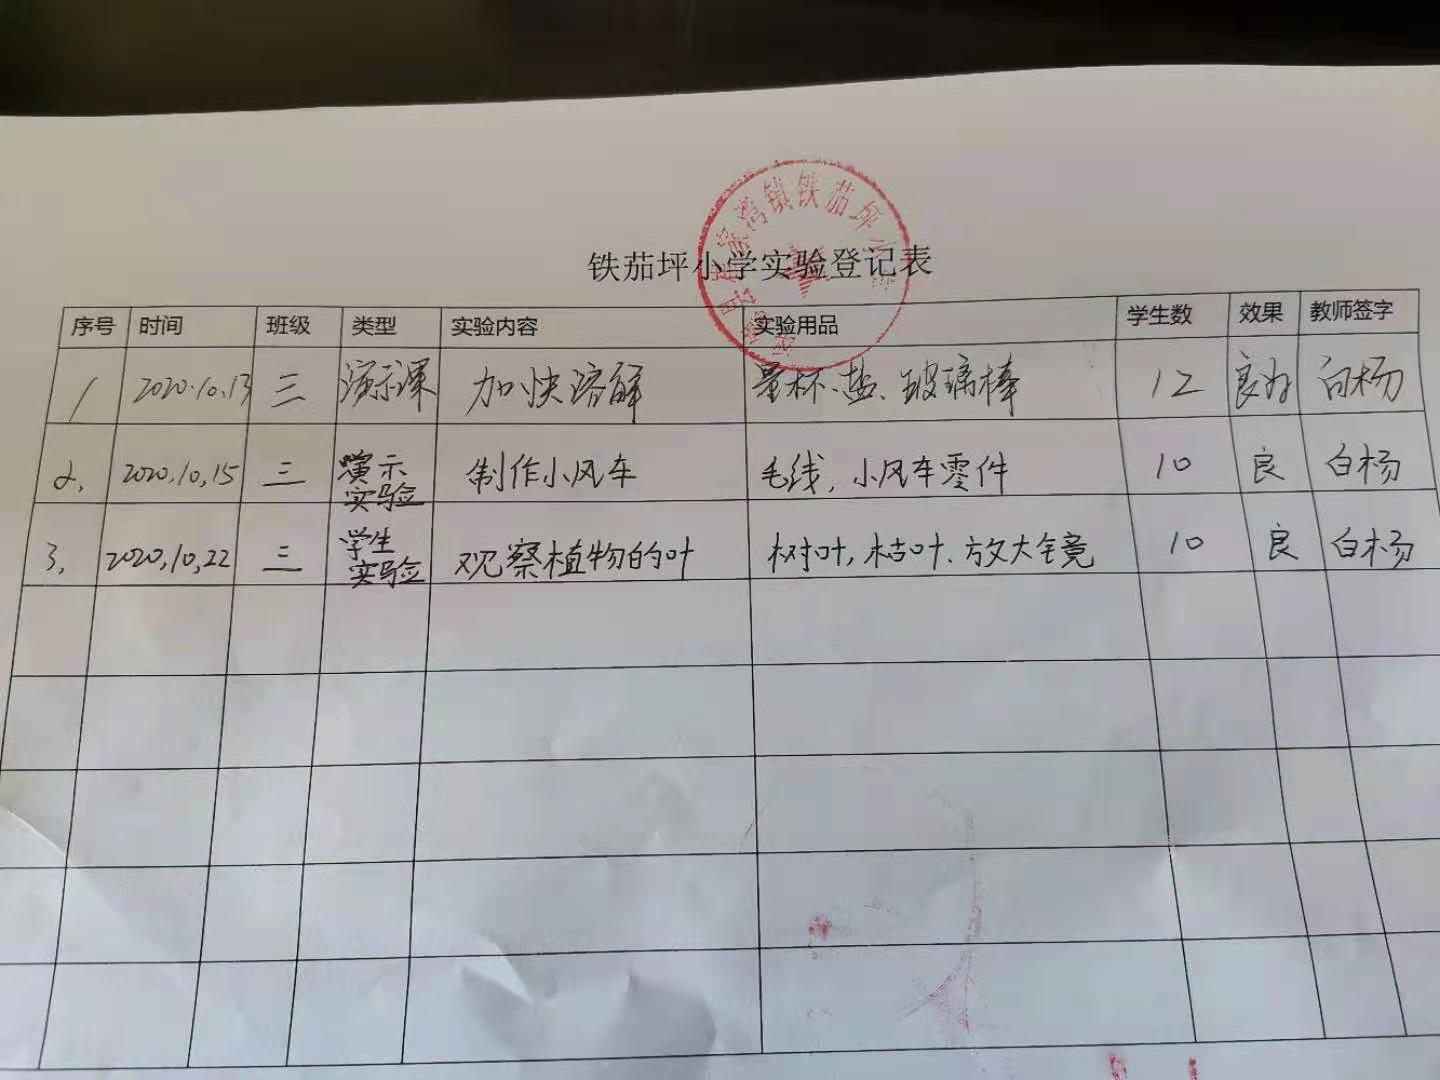 镇铁茄坪小学
铁茄坪小学实验登记表
序号 时间 班级 类型 实验内容 实验用品 学生数 效果 教师签字
1 2020.10.13 三 演示课 加快溶解 量杯、盐、玻璃棒 12 良好 白杨
2. 2020.10.15 三 演示 制作小风车 毛线, 小风车零件 10 良 白杨
实验
3. 2020.10.22 三 学生 观察植物的叶 树叶, 枯叶、放大镜 10 良 白杨
实验